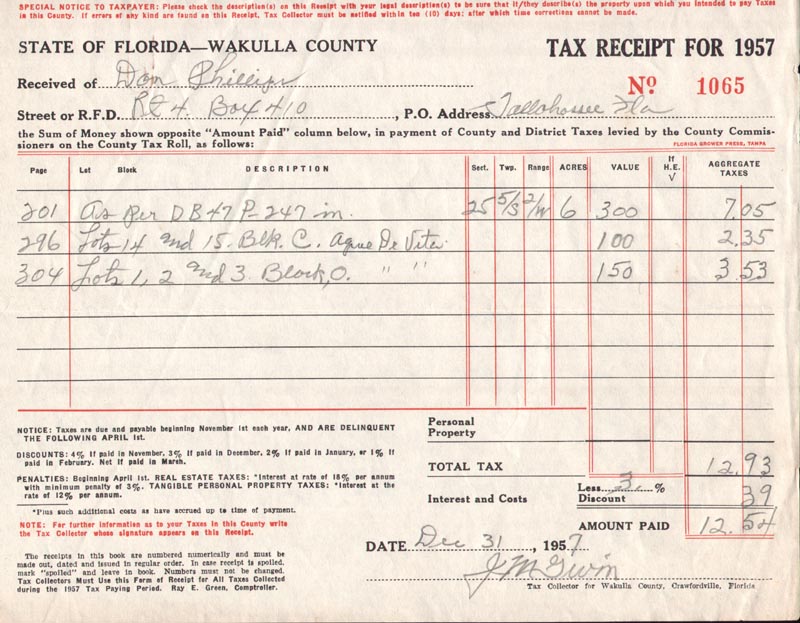 SPECIAL NOTICE TO TAXPAYER: Please check the description(s) on this Receipt with your legal description(s) to be sure that it/they describe(s) the property upon which you intended to pay Taxes
in this County. If errors of any kind are found on this Receipt, Tax Collector must be notified within ten (10) days; after which time corrections cannot be made.
STATE OF FLORIDA—WAKULLA COUNTY
TAX RECEIPT FOR 1957
Received of Don Phillips
No 1065
Street or R.F.D. Rt 4 Box 410, P.O. Address Tallahassee Fla
the Sum of Money shown opposite "Amount Paid" column below, in payment of County and District Taxes levied by the County Commis-
sioners on the County Tax Roll, as follows:
FLORIDA GROWER PRESS, TAMPA
Page Lot Block DESCRIPTION Sect. Twp. Range ACRES VALUE If H.E. √ AGGREGATE TAXES
201 As Per DB 47 P-247 in. 25 5/S 2/W 6 300 7.05
296 Lots 14 and 15. Blk. C. Aque De Vita 100 2.35
304 Lots 1, 2 and 3 Block, O. " " 150 3.53
NOTICE: Taxes are due and payable beginning November 1st each year, AND ARE DELINQUENT
THE FOLLOWING APRIL 1st.
DISCOUNTS: 4% if paid in November, 3% if paid in December, 2% if paid in January, or 1% if
paid in February. Net if paid in March.
PENALTIES: Beginning April 1st. REAL ESTATE TAXES: *Interest at rate of 18% per annum
with minimum penalty of 3%. TANGIBLE PERSONAL PROPERTY TAXES: *Interest at the
rate of 12% per annum.
*Plus such additional costs as have accrued up to time of payment.
NOTE: For further information as to your Taxes in this County write
the Tax Collector whose signature appears on this Receipt.
The receipts in this book are numbered numerically and must be
made out, dated and issued in regular order. In case receipt is spoiled,
mark "spoiled" and leave in book. Numbers must not be changed.
Tax Collectors Must Use this Form of Receipt for All Taxes Collected
during the 1957 Tax Paying Period. Ray E. Green, Comptroller.
Personal
Property
TOTAL TAX 12.93
Interest and Costs Less 3 % Discount 39
AMOUNT PAID 12.54
DATE Dec 31, 1957
Tax Collector for Wakulla County, Crawfordville, Florida